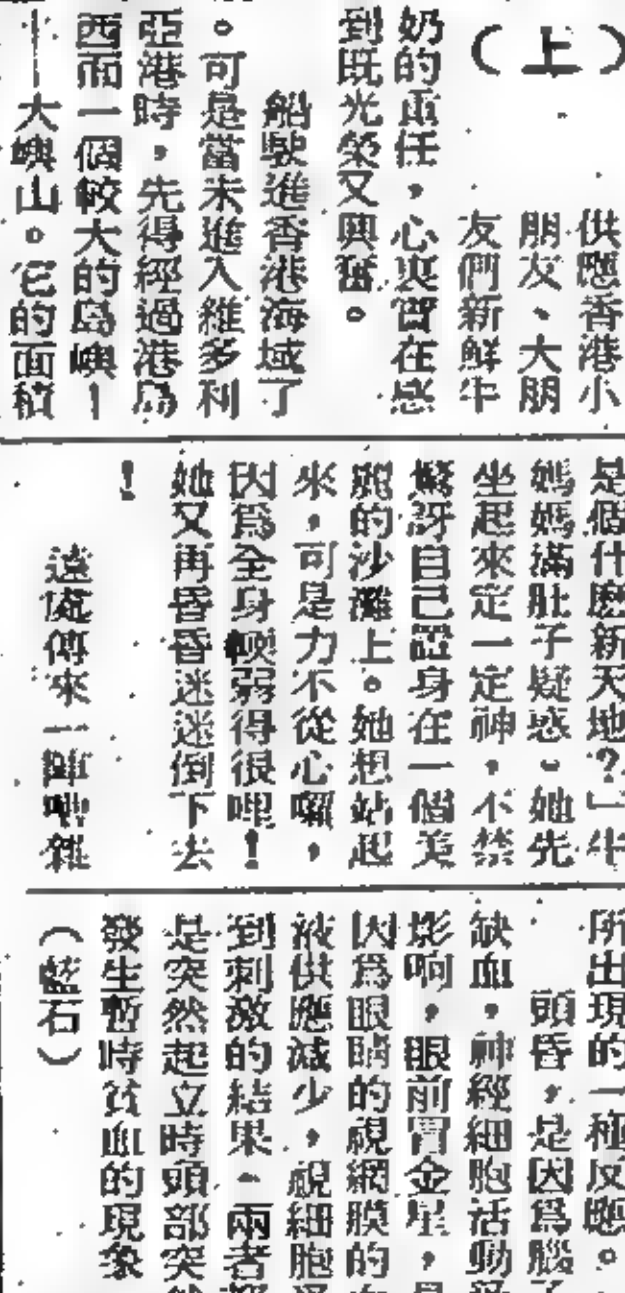 （上）
供應香港小
朋友、大朋
友們新鮮牛
奶的重任，心裏實在感
到既光榮又興奮。
船駛進香港海域了
。可是當未進入維多利
亞港時，先得經過港島
西面一個較大的島嶼—
—大嶼山。它的面積
是個什麽新天地？」牛
媽媽滿肚子疑惑。她先
坐起來定一定神，不禁
驚訝自己置身在一個美
麗的沙灘上。她想站起
來，可是力不從心喔，
因爲全身軟弱得很哩！
她又再昏昏迷迷倒下去
！
遠處傳來一陣嘈雜
所出現的一種反應。
頭昏，是因爲腦子
缺血，神經細胞活動受
影响，眼前冒金星，是
因爲眼睛的視網膜的血
液供應減少，視細胞受
到刺激的結果。兩者都
是突然起立時頭部突然
發生暫時貧血的現象
（藍石）